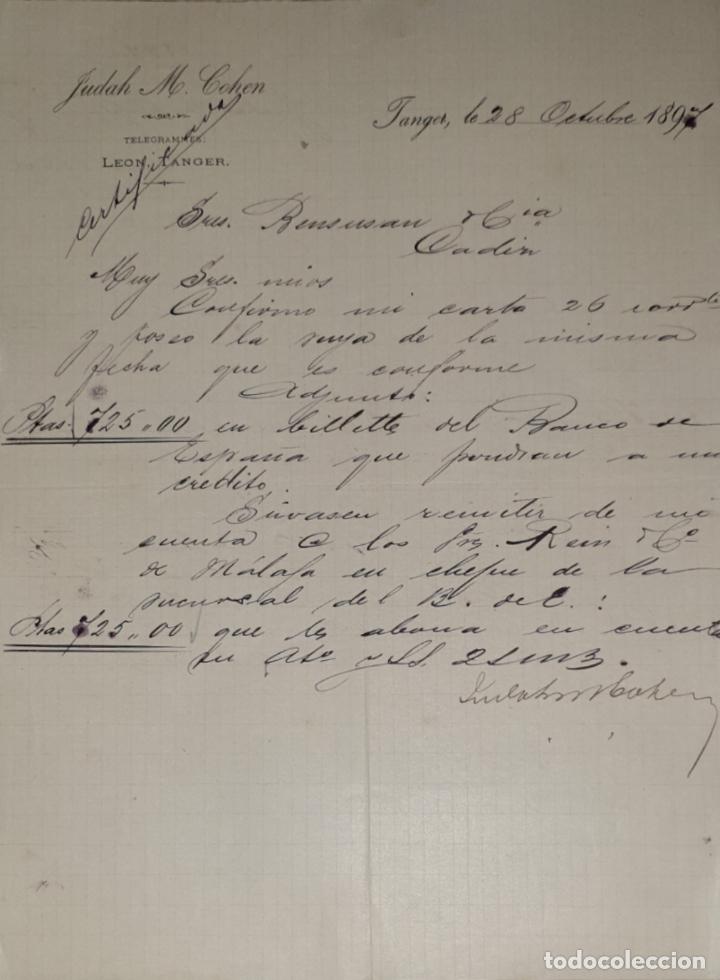 Judah M. Cohen
TELEGRAMMES:
LEON, TANGER.
Certificada
Tanger, le 28 Octubre 1897
Sres. Bensusan & Cia
Cadiz
Muy Sres. mios
Confirmo mi carta 26 corrte
y poseo la suya de la misma
fecha que es conforme
Adjunto:
Ptas. 725,,00 en billetts del Banco de
España que pondran a mi
credito.
Sirvasen remitir de mi
cuenta a los Rein & Co
de Málaga en cheque de la
sucursal del B. de E.:
Ptas 725,,00 que les abona en cuenta
su Ato y SS.
Judah M Cohen
todocoleccion